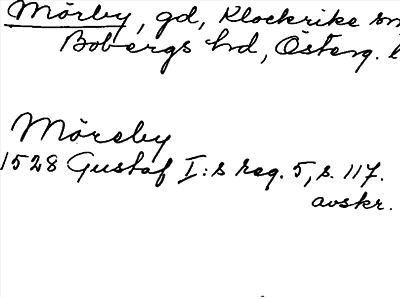 Mörby, gd, Klockrike sn
Bobergs hd, Österg. l
Mörsby
1528 Gustaf I:s reg. 5, s. 117.
avskr.